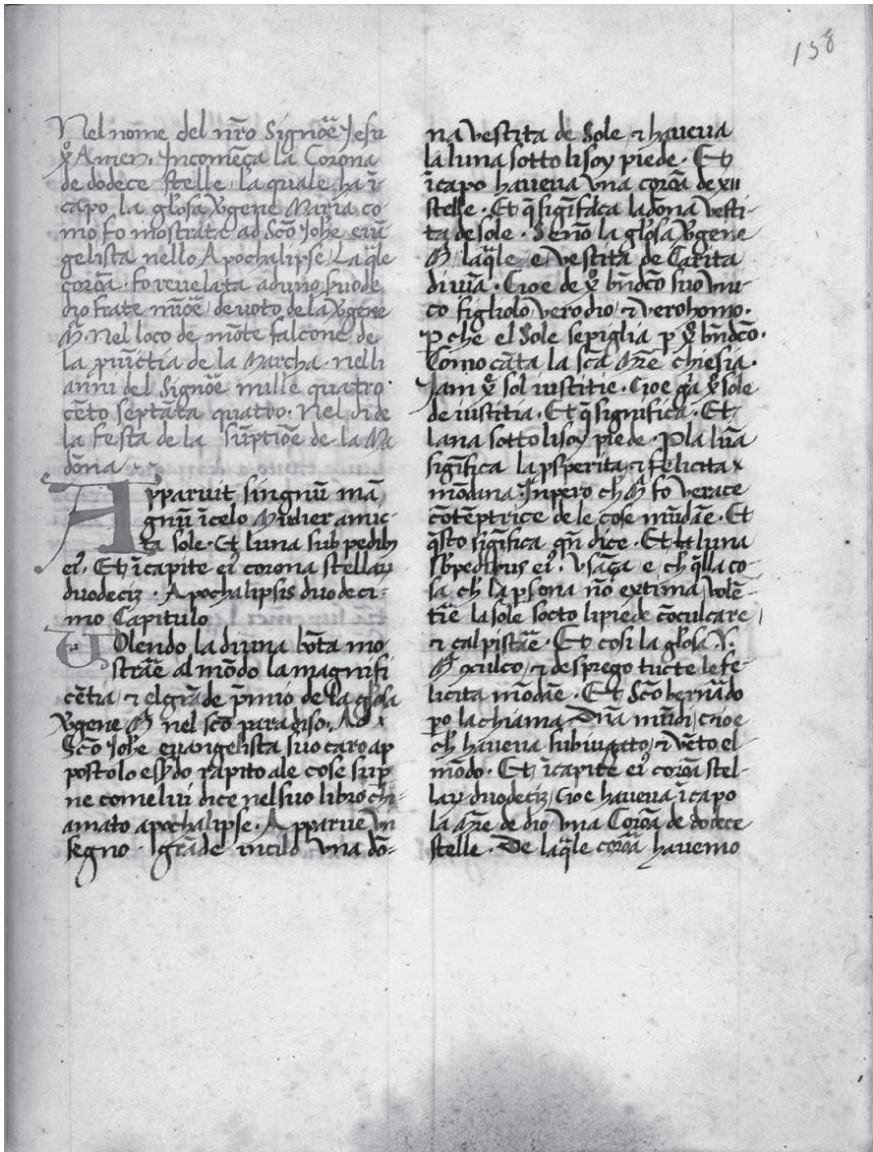 158
Nel nome del nr̄o Signōe Jesu
x̄ Amen. Incomēça la Corona
de dodece stelle. la quale ha ī
capo la gl̄osa v̄gene Maria co
mo fo mostrata ad Sc̄o Joh̄e euā
gelista nello Apochalipse. La q̄le
corōa. fo revelata ad uno servo de
dio frate de voto de la v̄gene
M̄. Nel loco de mōte falcone de
la puīctia de la Marcha. nelli
anni del Signōe mille quatro
cēto septāta quatro. Nel di de
la festa de la sūptiōe de la Ma
dōna
Apparuit singnū mā
gnū īcelo Mulier amic-
ta sole. Et luna sub pedib
ei9. Et īcapite ei9 corona stellaꝝ
duodecīz. Apochalipsis duodeci-
mo Capitulo
Volendo la diuina bōta mo
strāe al mōdo la magnifi
cētia ⁊ el grāde p̄mio de la gl̄osa
v̄gene M̄ nel sc̄o paradiso. Ad
Sc̄o Joh̄e euangelista suo caro ap
postolo essēdo rapito ale cose sup̄
ne come lui dice nel suo libro chi-
amato apochalipse. Apparue vn
segno grāde in cielo vna dō-
na vestita de Sole ⁊ haueua
la luna sotto li soy piede. Et
īcapo haueua vna corōa de xii
stelle. Et q̄ sigīfica la dōna vesti-
ta de sole. Senō la gl̄osa v̄gene
M̄ la q̄le e vestita de Carita
diuīa. Cioe de x̄ bn̄dc̄o suo vni-
co figliolo vero dio, ⁊ vero homo.
p che el Sole se piglia p x̄ bn̄dc̄o.
Como cāta la sc̄a Mr̄e chiesia.
Jam x̄ sol iustitie. Cioe gia x̄ sole
de iustitia. Et q̄ significa. Et
lana sotto li soy piede. Pla lūa
sigīfica la psperita, ⁊ felicita
mōdana. Inpero ch M̄ fo verace
cōtēptrice de le cose mūdāe. Et
q̄sto sigīfica qn̄ dice. Et luna
sb pedibus ei9. Vsāça e ch q̄lla co-
sa ch la psona nō extima, volē-
tie la sole socto li piede cōculcare
⁊ calpistāe. Et cosi la gl̄osa V.
M̄ ⁊ desprego tucte le fe-
licita mōdāe. Et Sc̄o bernādo
po la chiama Dn̄a mūdi, cioe
ch haueua subiugato, ⁊ vēto el
mōdo. Et īcapite ei9 corōa stel-
laꝝ duodecīz, Cioe haueua īcapo
la Mr̄e de dio vna Corōa de dodece
stelle. De la q̄le corōa hauemo